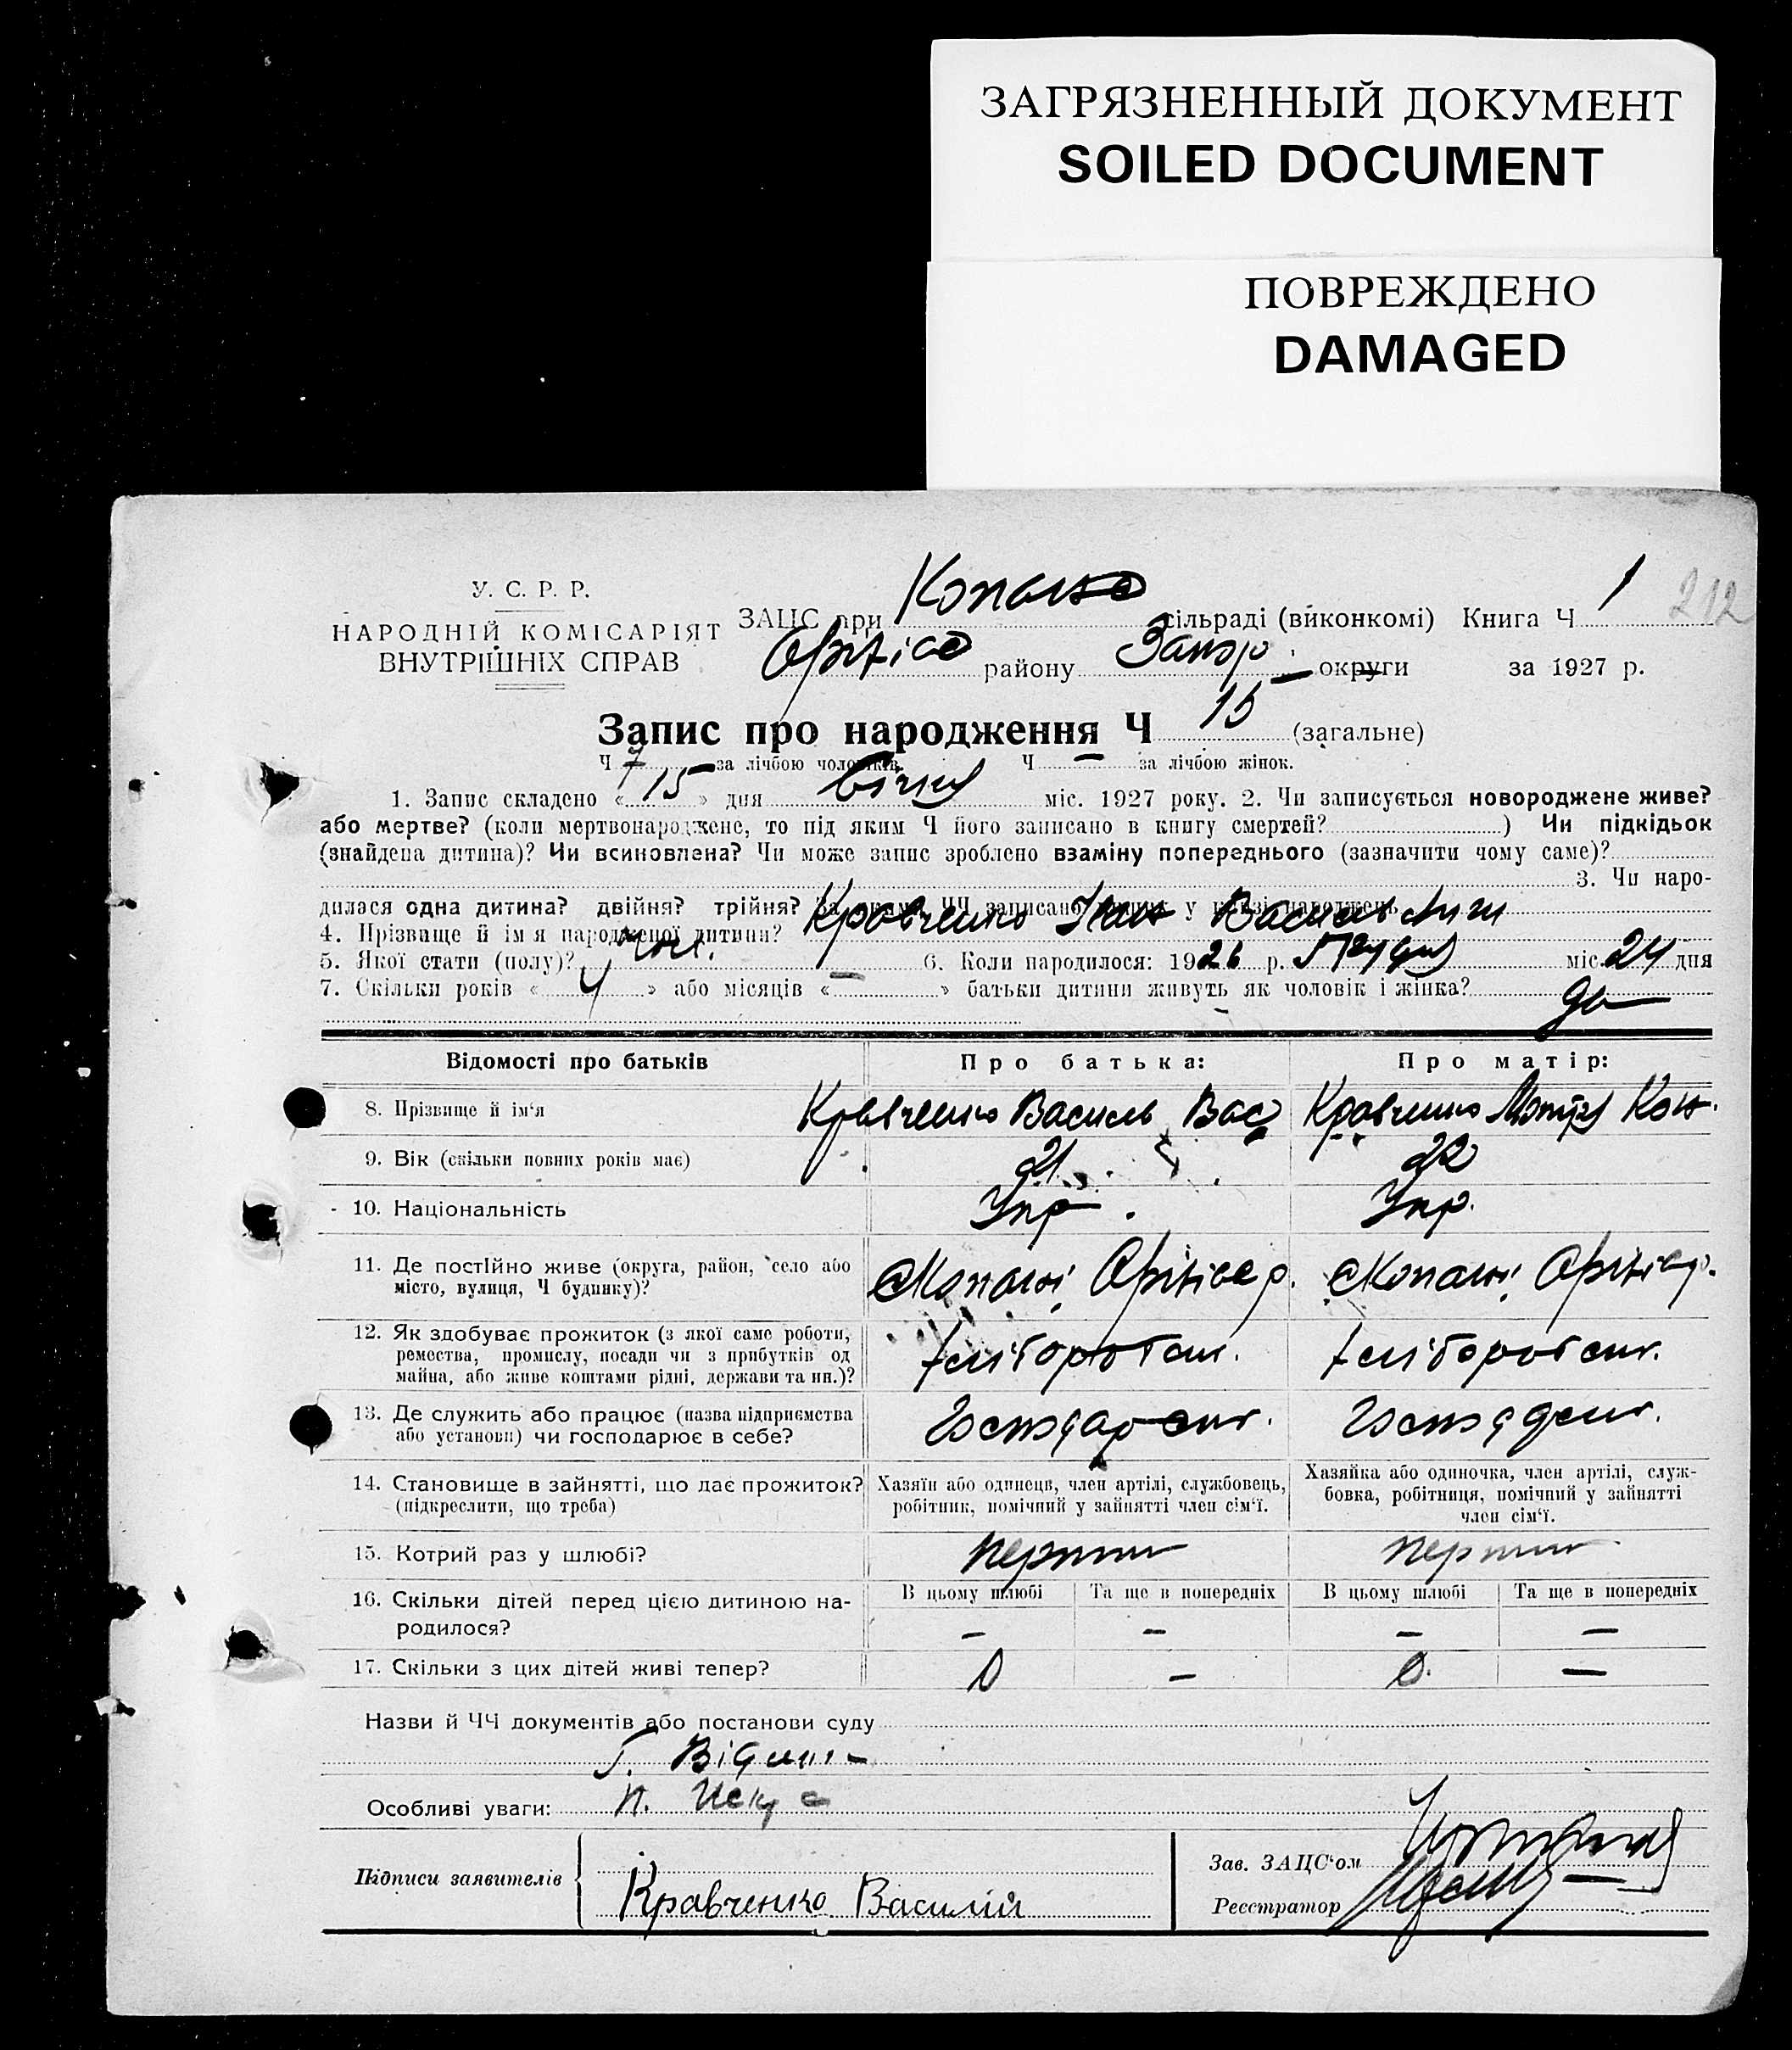 ЗАГРЯЗНЕННЫЙ ДОКУМЕНТ
SOILED DOCUMENT
ПОВРЕЖДЕНО
DAMAGED
212
У. С. Р. Р.
НАРОДНІЙ КОМІСАРІЯТ
ВНУТРІШНІХ СПРАВ
ЗАЦС при сільраді (виконкомі) Книга Ч 1
району Запор. округи за 1927 р.
Запис про народження Ч 15 (загальне)
Ч 7 за лічбою чоловіків. Ч — за лічбою жінок.
1. Запис складено «15» дня Січня міс. 1927 року. 2. Чи записується новороджене живе?
або мертве? (коли мертвонароджене, то під яким Ч його записано в книгу смертей? ) Чи підкідьок
(знайдена дитина)? Чи всиновлена? Чи може запис зроблено взаміну попереднього (зазначити чому саме)?
3. Чи наро-
дилася одна дитина? двійня? трійня? За якими ЧЧ записано у книзі народжень
4. Прізвище й ім'я народженої дитини? Кравченко Іван Васильович
5. Якої стати (полу)? чол. 6. Коли народилося: 1926 р. Грудня міс. 24 дня
7. Скільки років « » або місяців «—» батьки дитини живуть як чоловік і жінка? да
Відомості про батьків Про батька: Про матір:
8. Прізвище й ім'я Кравченко Василь Вас Кравченко Мотря Кон.
9. Вік (скільки повних років має) 21 22
10. Національність Укр. Укр.
11. Де постійно живе (округа, район, село або
місто, вулиця, Ч будинку)?
12. Як здобуває прожиток (з якої саме роботи,
ремества, промислу, посади чи з прибутків од
майна, або живе коштами рідні, держави та ин.)?
13. Де служить або працює (назва підприємства
або установи) чи господарює в себе?
14. Становище в зайнятті, що дає прожиток?
(підкреслити, що треба)
Хазяїн або одинець, член артілі, службовець,
робітник, помічний у зайнятті член сім'ї.
Хазяйка або одиночка, член артілі, служ-
бовка, робітниця, помічний у зайнятті
член сім'ї.
15. Котрий раз у шлюбі? перший перший
16. Скільки дітей перед цією дитиною на-
родилося?
В цьому шлюбі Та ще в попередніх В цьому шлюбі Та ще в попередніх
— — — —
17. Скільки з цих дітей живі тепер? 0 — 0 —
Назви й ЧЧ документів або постанови суду
Особливі уваги:
Підписи заявителів
Кравченко Василій
Зав. ЗАЦС'ом
Реєстратор